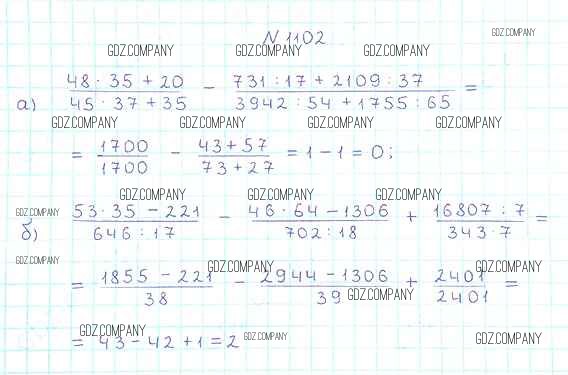 N 1102
GDZ.COMPANY GDZ.COMPANY GDZ.COMPANY GDZ.COMPANY
а) (48 · 35 + 20)/(45 · 37 + 35) − (731 : 17 + 2109 : 37)/(3942 : 54 + 1755 : 65) =
GDZ.COMPANY GDZ.COMPANY GDZ.COMPANY GDZ.COMPANY
= 1700/1700 − (43 + 57)/(73 + 27) = 1 − 1 = 0;
GDZ.COMPANY GDZ.COMPANY GDZ.COMPANY GDZ.COMPANY
б) (53 · 35 − 221)/(646 : 17) − (46 · 64 − 1306)/(702 : 18) + (16807 : 7)/(343 · 7) =
GDZ.COMPANY GDZ.COMPANY GDZ.COMPANY
= (1855 − 221)/38 − (2944 − 1306)/39 + 2401/2401 =
GDZ.COMPANY
GDZ.COMPANY GDZ.COMPANY GDZ.COMPANY
= 43 − 42 + 1 = 2